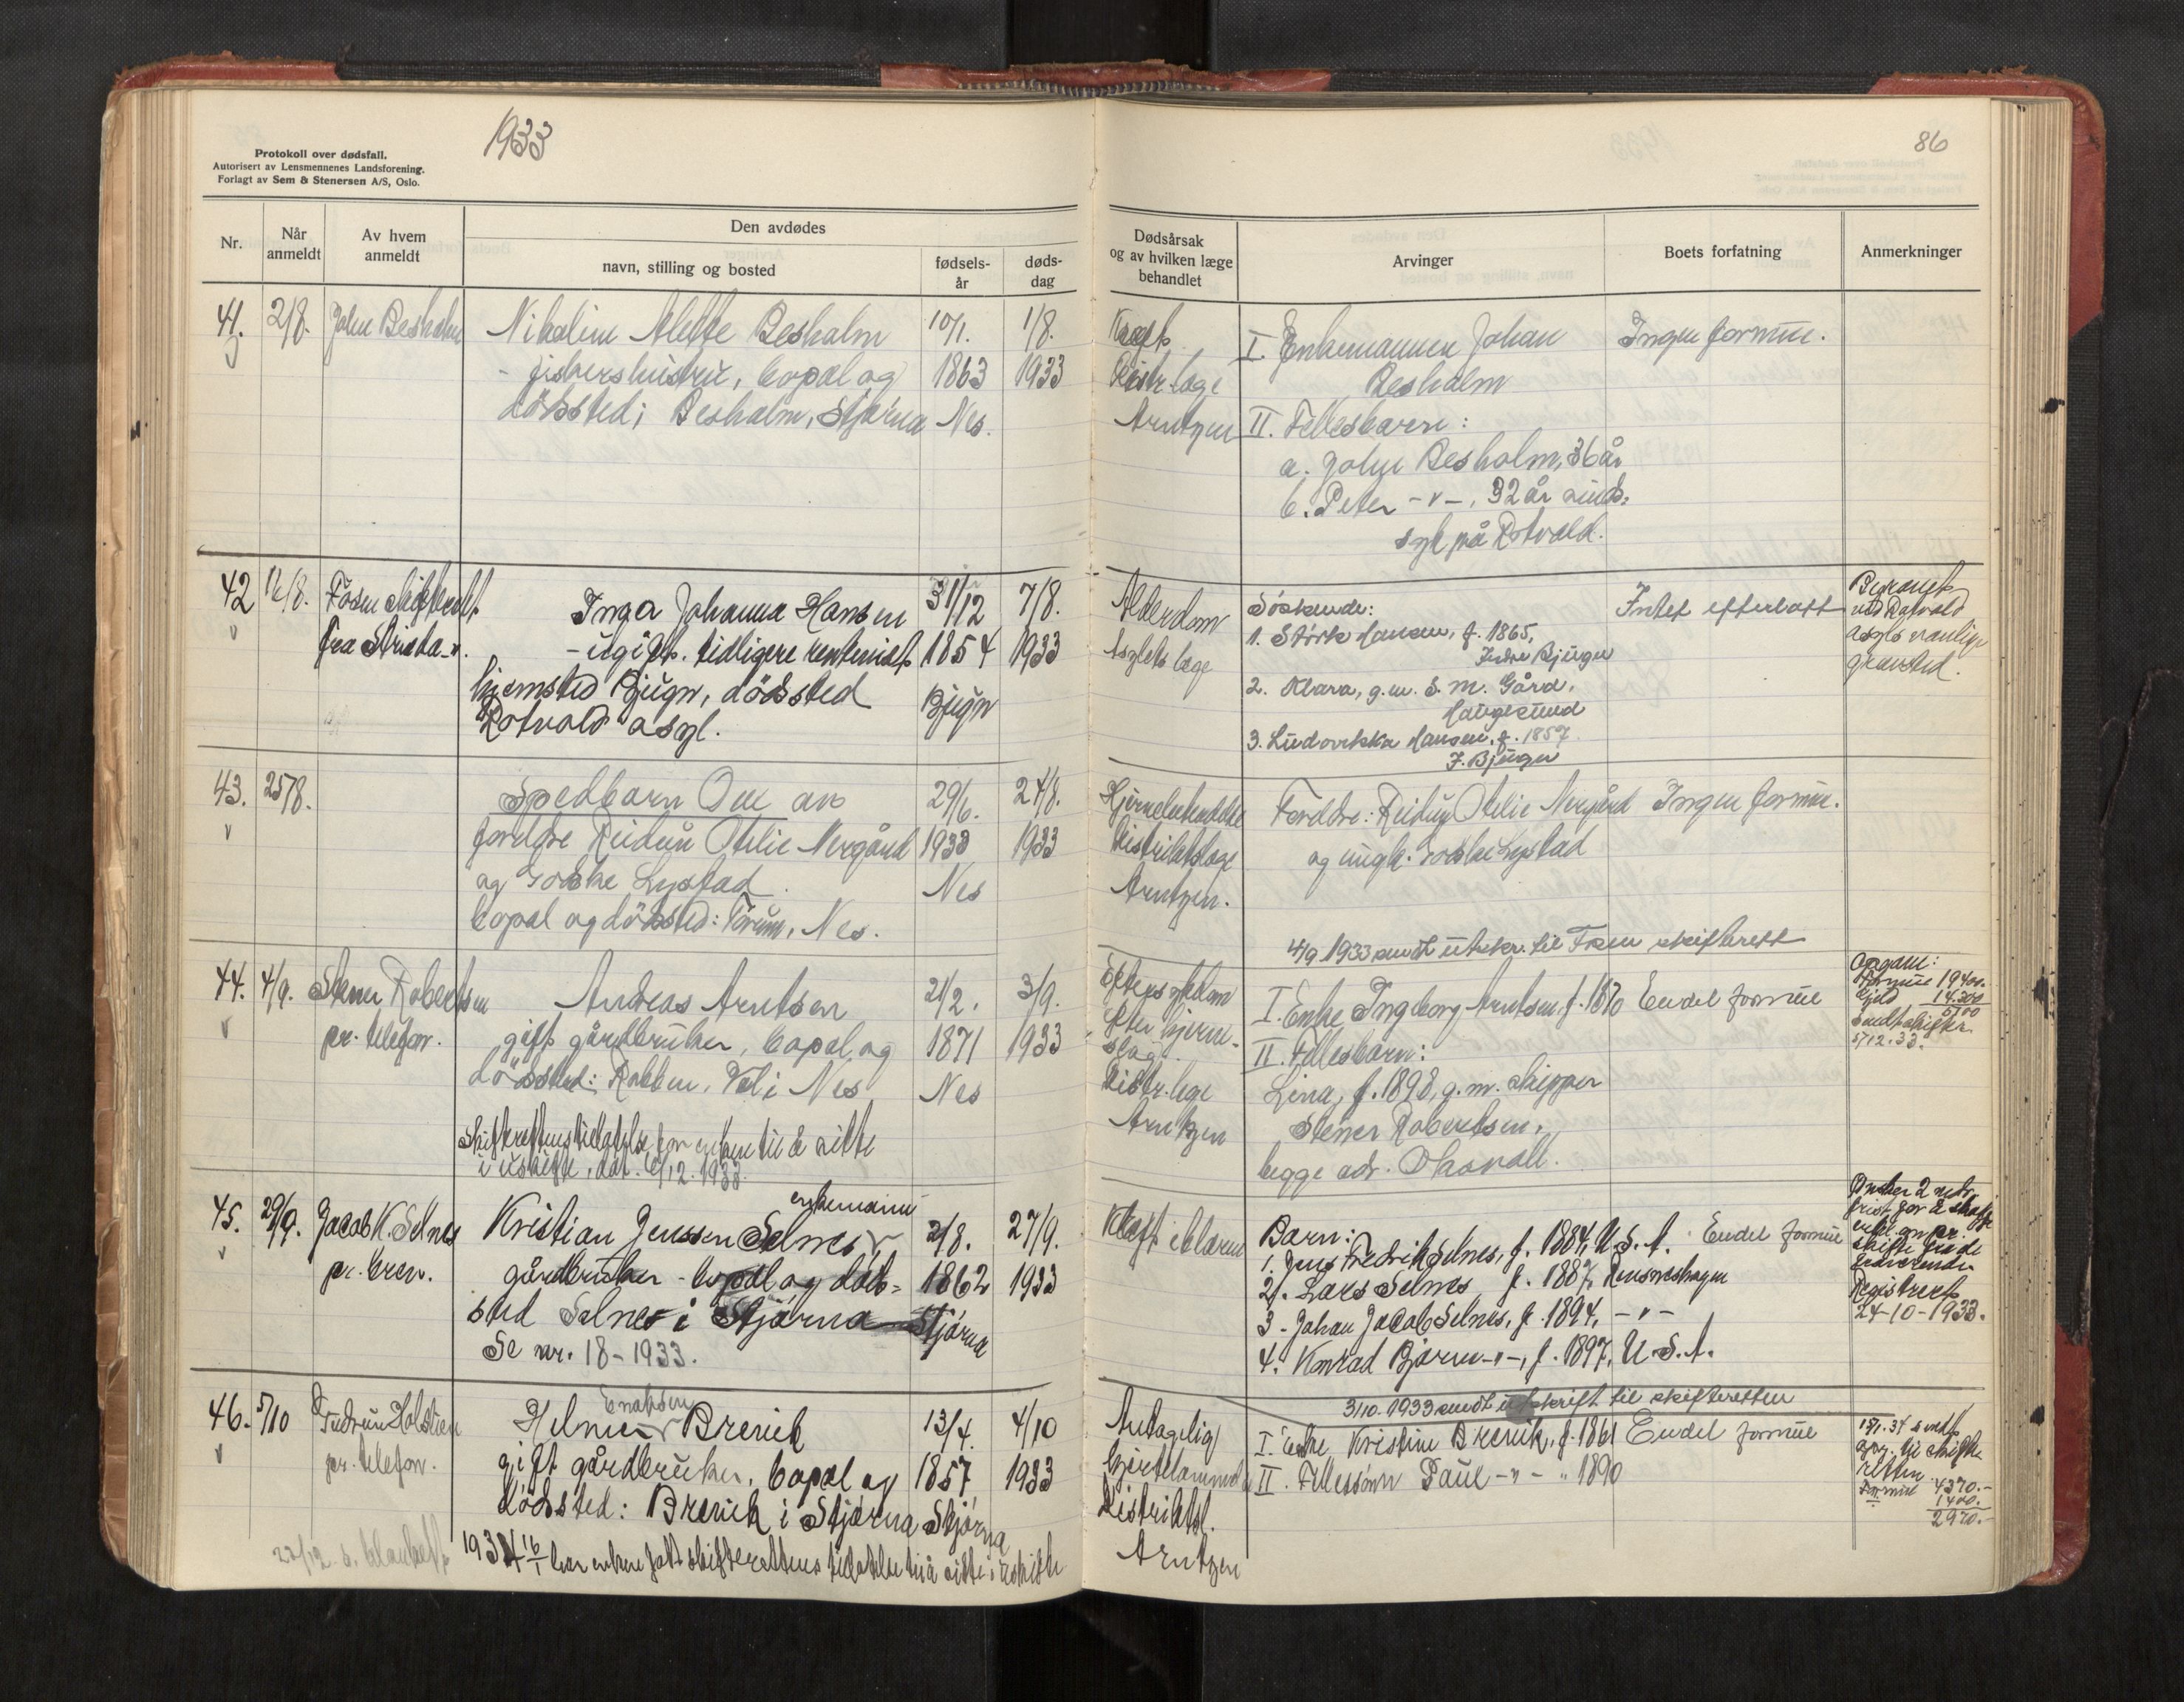 1933
86
Protokoll over dødsfall.
Autorisert av Lensmennenes Landsforening.
Forlagt av Sem & Stenersen A/S, Oslo.
Nr.
Når anmeldt
Av hvem anmeldt
Den avdødes
navn, stilling og bosted
fødsels-
år
døds-
dag
Dødsårsak
og av hvilken læge
behandlet
Arvinger
Boets forfatning
Anmerkninger
41. 2/8. John Besholm
Nikoline Alette Besholm 10/1. 1/8.
- fiskershustru, bopel og 1863 1933
dödssted; Besholm, Stjørna Nes.
Kreft
Distr. læge
Arntzen
I. Enkemannen Johan
Besholm
II. Fellesbarn:
a. John Besholm, 36 år
b. Peter -"-, 32 år sinds-
syk på Rotvold.
Ingen formue.
42 12/8. Fosen skifterett
fra Strinda -"-
Inga Johanna Hansen 31/12 7/8.
- ugift. tidligere rentenist 1854 1933
hjemsted Bjugn, dödssted Bjugn
Rotvold asyl.
Alderdom
Asylets læge
Søskende:
1. Störk Hansen, f. 1865,
Indre Bjugn
2. Klara, g.m. S. M. Gård,
Haugesund
3. Ludovikka Hansen, f. 1857.
I. Bjugn
Intet efterlatt
Begravet
ved Rotvold
asyls vanlige
gravsted.
43. 25/8.
Spedbarn Ove av 29/6. 24/8.
foreldre Reidun Otelie Nergård 1933 1933
og Godske Lystad. Nes
bopel og dödssted: Tørum, Nes.
Hjernebetendelse
Distriktslæge
Arntzen.
Foreldre: Reidun Otelie Nergård
og ungk. Godske Lystad
Ingen formue.
4/9 1933 sendt utskr. til Fosen skifterett
44. 4/9. Stener Robertsen
pr. telefon.
Andreas Arntsen 21/2. 3/9.
gift gårdbruker, bopel og 1871 1933
dödssted: Rabben, Val i Nes Nes
Skifterettens tillatelse for enken til å sitte
i uskifte, dat. 6/12. 1933.
efter hjerne-
slag.
Distr. læge
Arntzen
I. Enke Ingeborg Arntsen, f. 1870
II. Fellesbarn:
Lina, f. 1898, g.m. skipper
Stener Robertsen,
begge adr. Oksvoll.
Endel formue
Opgave:
Formue 19400.-
Gjeld 14.300
5100
Sendt skifter.
5/12.33.
45. 29/9. Jacob K. Selnes
pr. brev.
enkemann
Kristian Jenssen Selnes, 2/8. 27/9.
gårdbruker - bopel og döds- 1862 1933
sted Selnes i Stjørna Stjørna
Se nr. 18 - 1933.
Kreft i blæren
Barn:
1. Jens Fredrik Selnes, f. 1884, U.S.A.
2. Lars Selnes f. 1887, Rensneshagen
3 - Johan Jacob Selnes, f. 1894, -"-
4. Konrad Bjarne -"-, f. 1897, U.S.A.
Endel formue
Ønsker 2 mdr.
frist for å
Registrert
24-10-1933.
3/10. 1933 sendt utskrift til skifteretten
46. 5/10 Gudrun Holstien
pr. telefon.
Enoksen
Helmer Brevik 13/4. 4/10
gift gårdbruker, bopel og 1857 1933
dödssted: Brevik i Stjørna Stjørna
1934 16/1 har enken fått skifterettens tillatelse til å sitte i uskifte
Antagelig
hjertelammelse
Distriktsl.
Arntzen
I. Enke Kristine Brevik, f. 1861
II. Fellessönn Paul -"- " 1890
Endel formue
15/1. 34 sendt
opg. til skifte
retten.
Formue 4370.-
1400.-
2970.-